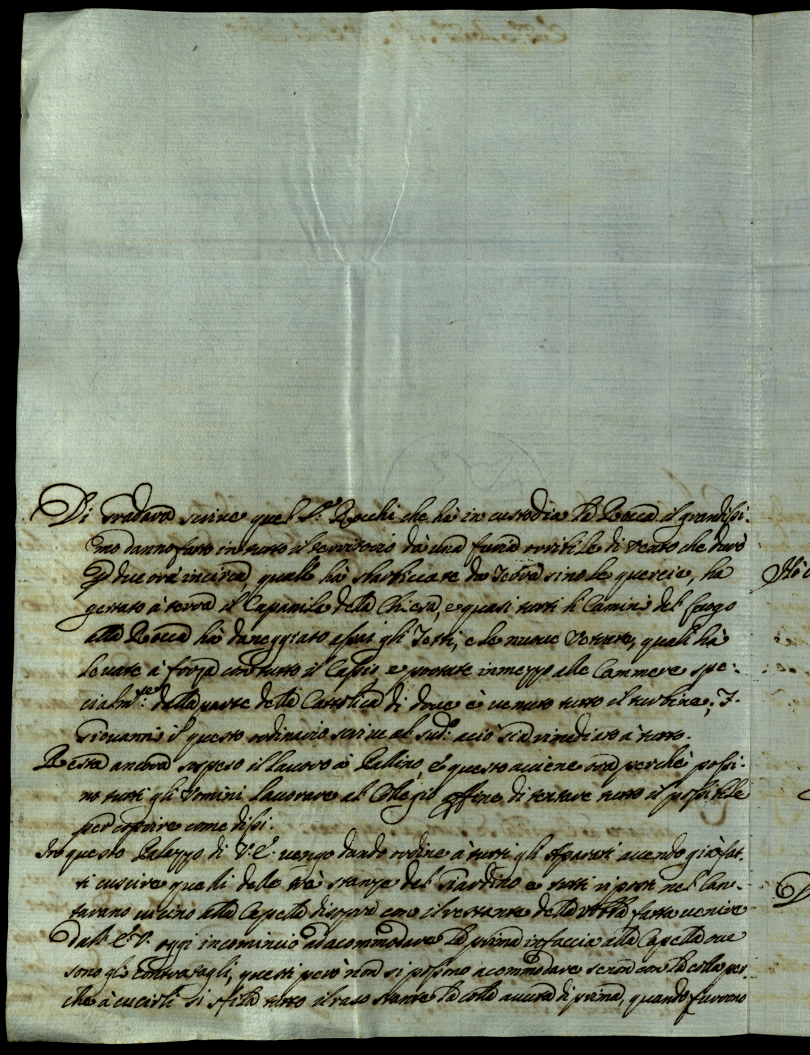 Di Gradara scrive quel S.r Rocchi che hà in custodia la Rocca il grandissi:
mo danno fatto in tutto il territorio da una furia orribile di vento che durò
p due ore incirca, quale hà sbarbicate da Terra sino le quercie, ha
gettato à terra il Capanile della Chiesa, e quasi tutti li Camini del fuogo
alla Rocca hà daneggiato assai gli Tetti, e le nuove Vetrate, quali hà
levate à forza con tutto il Tellaio, e portate in mezzo alle Cammere spe:
cialm.te dalla parte della Cattolica di dove è venuto tutto il turbine;
Giovannis p questo ordinario scrive al sud.o acciò sia rimediato à tutto.
Resta ancora sospeso il lavoro à Pellino, e questo aviene ora perchè possi:
no tutti gli Uomini lavorare al Collegio affine di tentare tutto il possibile
per coprire come dissi.
In questo Palazzo di V: E: vengo dando ordine à tutti gli Aparati avendo già fat:
ti cuscire quelli delle trè stanze del Giardino e tutti riposti nel
vicino alla Capella di sopra con il restante della robba fatta venire
dall' E. V. oggi incomincio ad accommodare la prima in faccia alla Capella ove
sono gli contratagli, questi però non si possono acommodare se non con la colla per:
che à cucirli si sfila tutto il raso stante la colla avuta di prima, quando furono